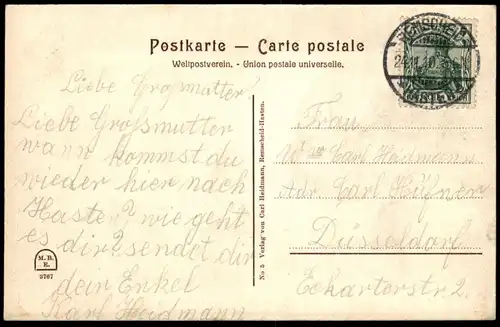 Postkarte — Carte postale
Weltpostverein. - Union postale universelle.
REMSCHEID
24.11.10
Liebe Großmutter!
Liebe Großmutter
wann kommst du
wieder hier nach
Hasten? wie geht
es dir? sendet dir
dein Enkel
Karl Heidmann
M. B.
E.
3767
No 5 Verlag von Carl Heidmann, Remscheid-Hasten.
Frau
Wwe Carl Heidmann
adr. Carl Hüfner
Düsseldorf
Eckarterstr. 2